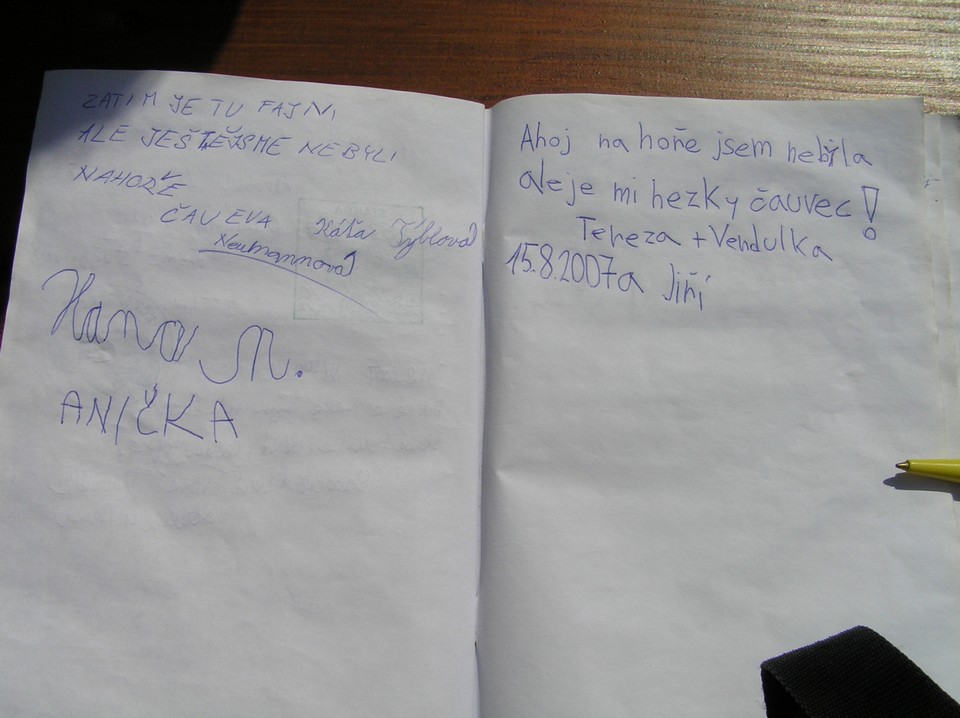 ZATIM JE TU FAJN,
ALE JEŠTĚ JSME NEBYLI
NAHOŘE
ČAU EVA
Neumannová
Káťa Týblová
Hana N.
ANIČKA
Ahoj na hoře jsem nebyla
ale je mi hezky čauvec!
Tereza + Vendulka
15.8.2007 a Jiří